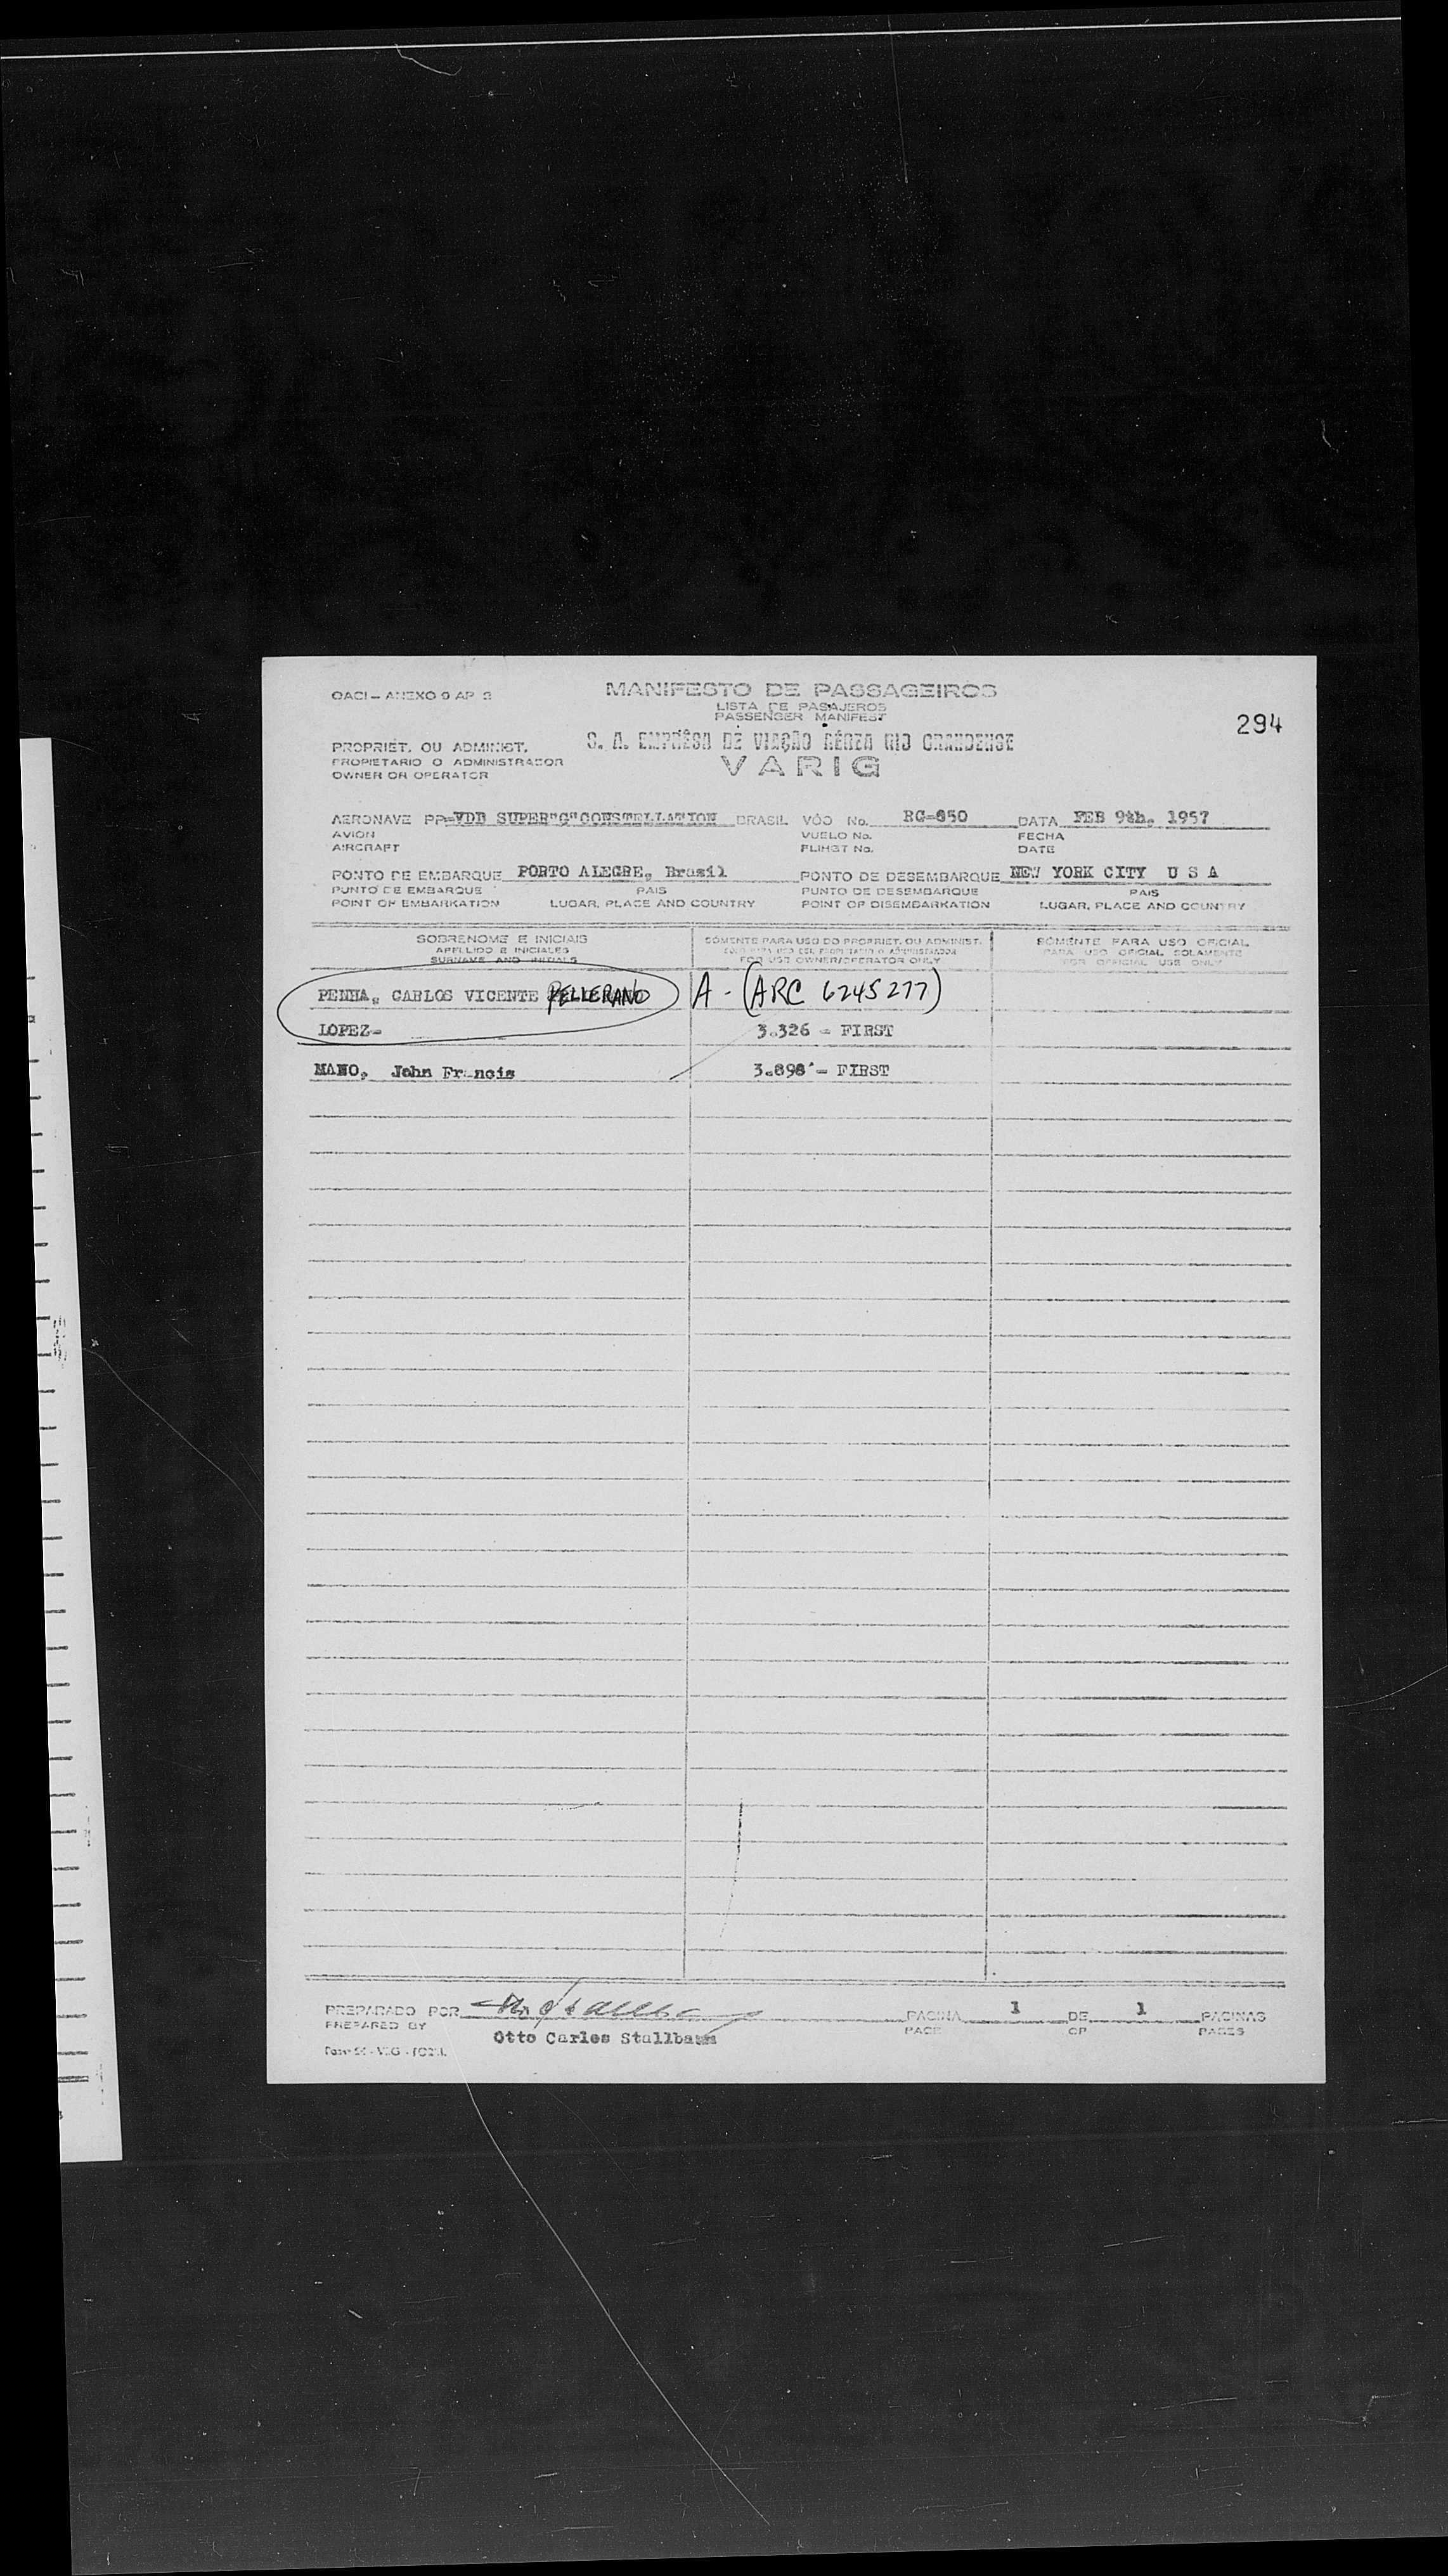 OACI – ANEXO 9 AP 2
MANIFESTO DE PASSAGEIROS
LISTA DE PASAJEROS
PASSENGER MANIFEST
294
S. A. EMPRÊSA DE VIAÇÃO AÉREA RIO GRANDENSE
VARIG
PROPRIET. OU ADMINIST.
PROPIETARIO O ADMINISTRADOR
OWNER OR OPERATOR
AERONAVE PP-VDB SUPER"G"CONSTELLATION BRASIL VÔO No. RG-850 DATA FEB 9th, 1957
AVION VUELO No. FECHA
AIRCRAFT FLIHGT No. DATE
PONTO DE EMBARQUE PORTO ALEGRE, Brasil PONTO DE DESEMBARQUE NEW YORK CITY U S A
PUNTO DE EMBARQUE PAIS PUNTO DE DESEMBARQUE PAIS
POINT OF EMBARKATION LUGAR, PLACE AND COUNTRY POINT OF DISEMBARKATION LUGAR, PLACE AND COUNTRY
SOBRENOME E INICIAIS SÒMENTE PARA USO DO PROPRIET. OU ADMINIST. SÒMENTE PARA USO OFICIAL
APELLIDO E INICIALES SOLO PARA USO DEL PROPIETARIO O ADMINISTRADOR PARA USO OFICIAL SOLAMENTE
SURNAME AND INITIALS FOR USE OWNER/OPERATOR ONLY FOR OFFICIAL USE ONLY
PENHA, CARLOS VICENTE PELLERANO A - (ARC 6245277)
LOPEZ- 3.326 - FIRST
MANO, John Francis 3.898 - FIRST
PREPARADO POR PAGINA 1 DE 1 PAGINAS
PREPARED BY PAGE OF PAGES
Otto Carlos Stallbaum